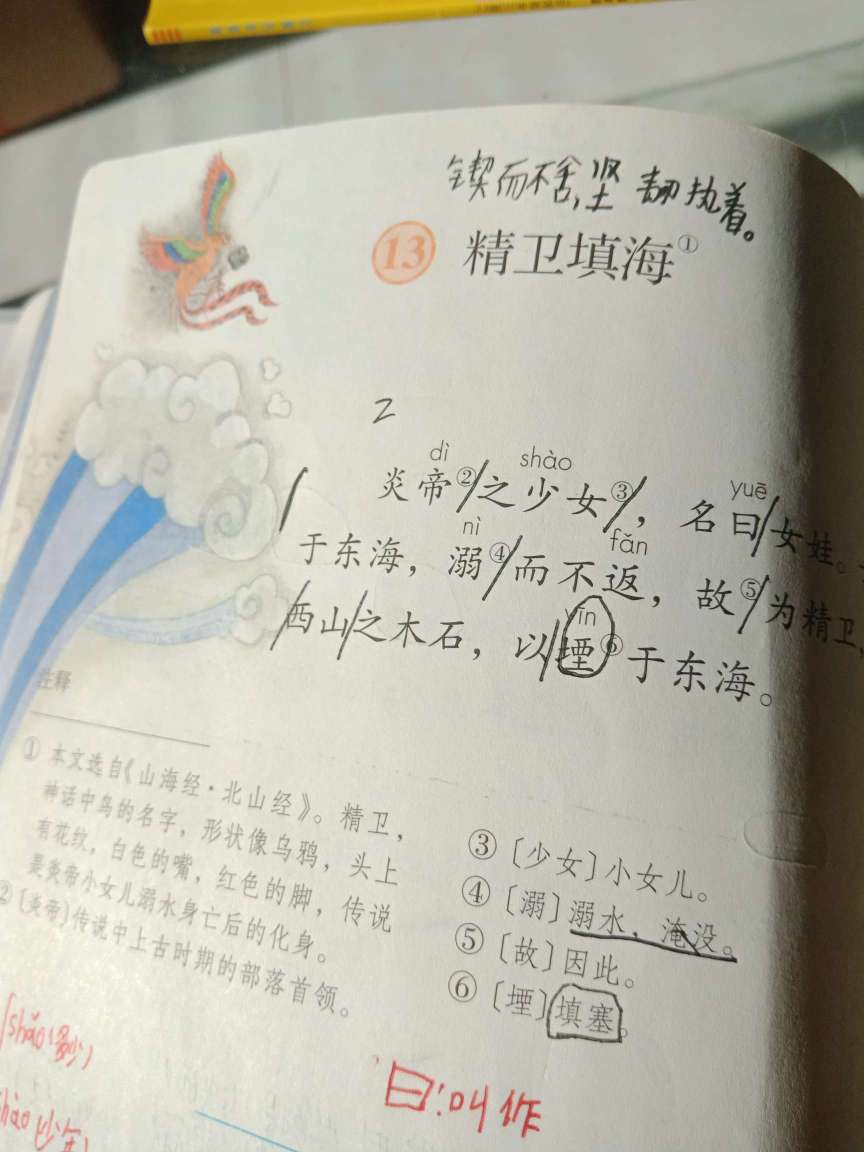 锲而不舍，坚韧执着。
13 精卫填海①
2
dì shào yuē
炎帝②/之少女③/，名曰/女娃。
nì fǎn
于东海，溺④/而不返，故⑤/为精卫，
yīn
/西山/之木石，以/堙⑥于东海。
注释
① 本文选自《山海经·北山经》。精卫，
神话中鸟的名字，形状像乌鸦，头上
有花纹，白色的嘴，红色的脚，传说
是炎帝小女儿溺水身亡后的化身。
②〔炎帝〕传说中上古时期的部落首领。
③〔少女〕小女儿。
④〔溺〕溺水，淹没。
⑤〔故〕因此。
⑥〔堙〕填塞。
shǎo
曰：叫作